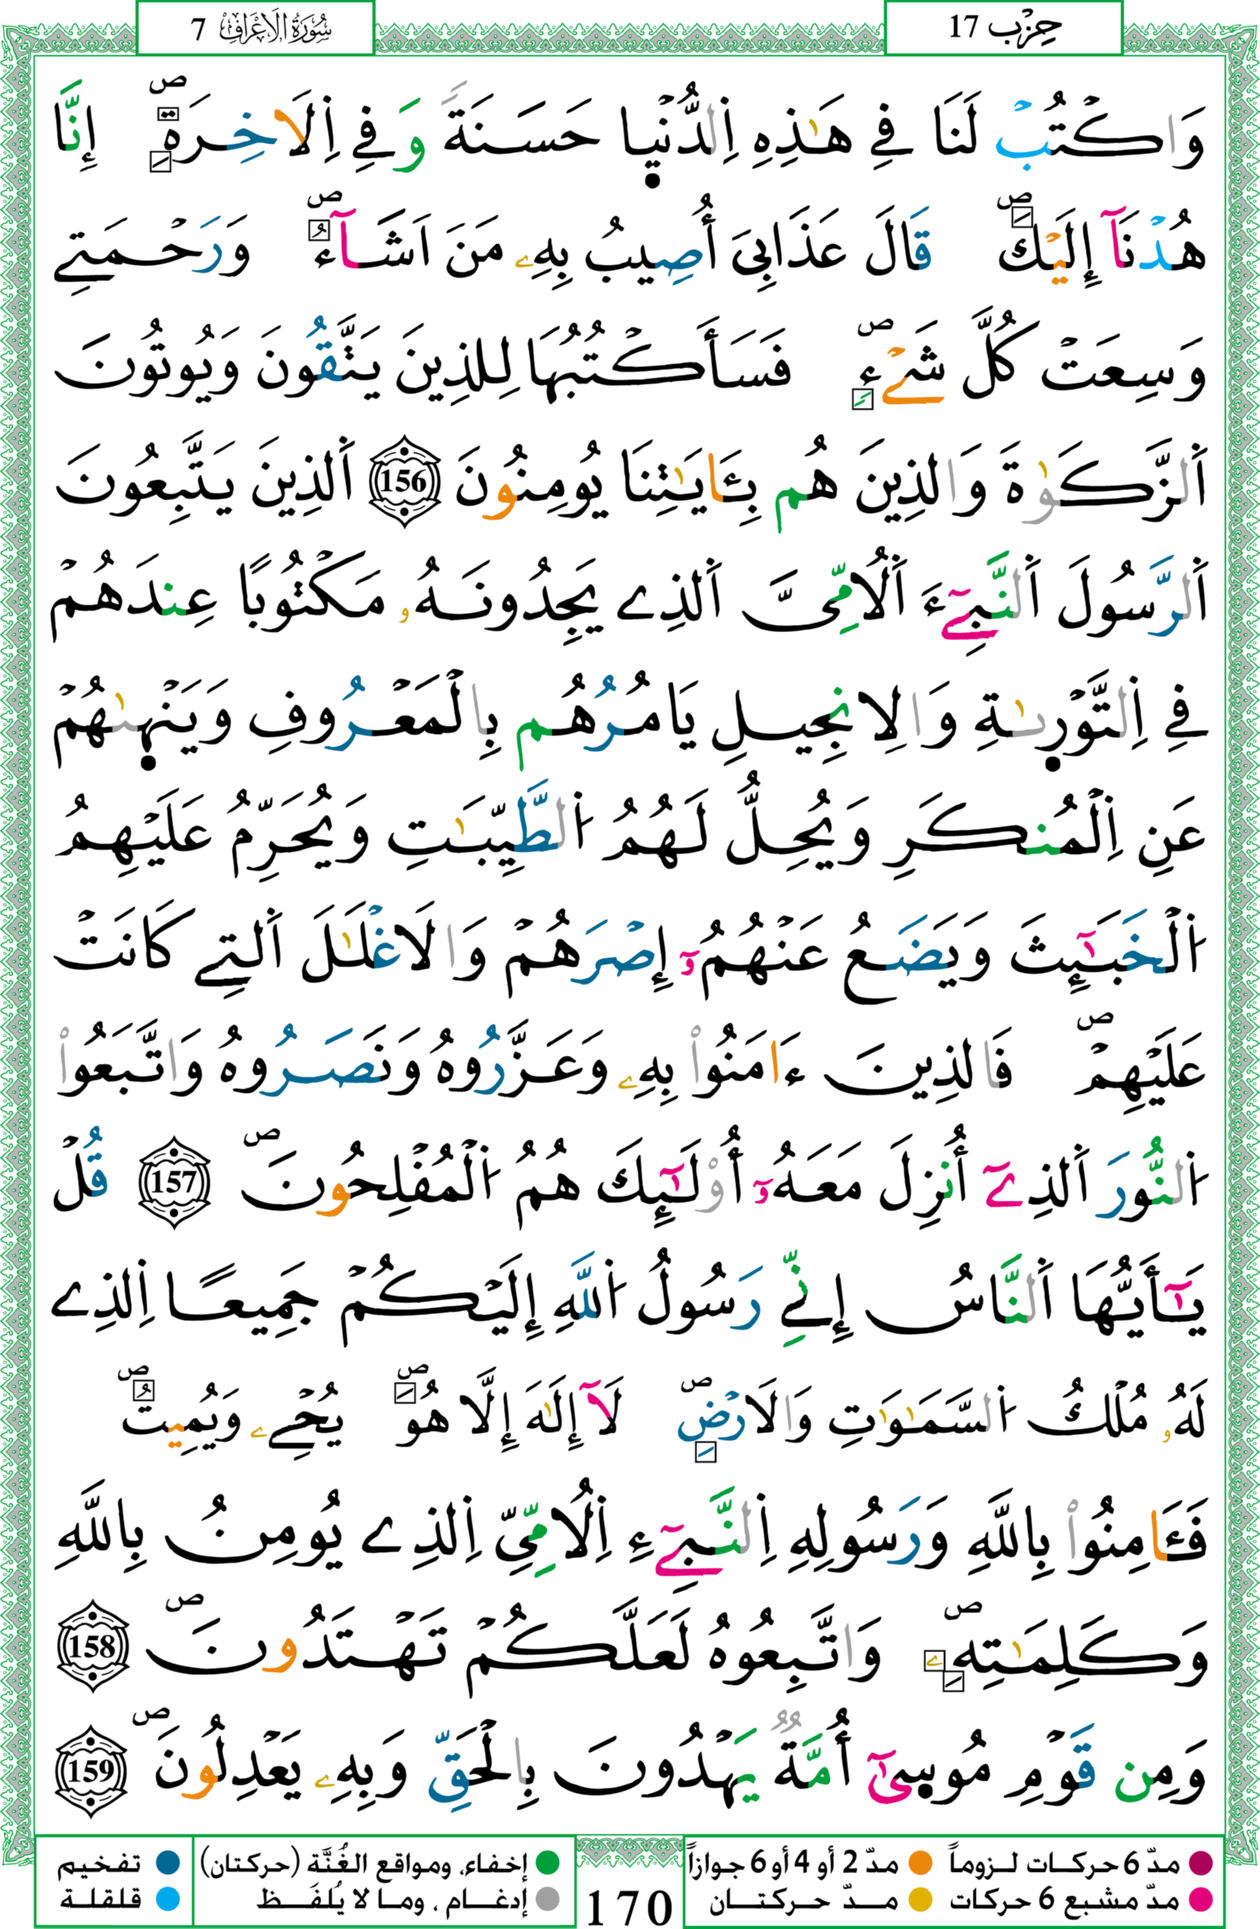 حِزْب 17
سُورَةُ الَاعْرَافِ 7
وَاكْتُبْ لَنَا فِے هَـٰذِهِ اِلدُّنْيۭا حَسَنَةٗ وَفِے اِلَاخِرَةِۖ إِنَّا
هُدْنَآ إِلَيْكَۖ قَالَ عَذَابِيَ أُصِيبُ بِهِۦ مَنَ اَشَآءُۖ وَرَحْمَتِے
وَسِعَتْ كُلَّ شَےْءٖۖ فَسَأَكْتُبُهَا لِلذِينَ يَتَّقُونَ وَيُوتُونَ
اَلزَّكَوٰةَ وَالذِينَ هُم بِـَٔايَـٰتِنَا يُومِنُونَ 156 اَلذِينَ يَتَّبِعُونَ
اَلرَّسُولَ اَلنَّبِےٓءَ اَلُامِّيَّ اَلذِے يَجِدُونَهُۥ مَكْتُوبًا عِندَهُمْ
فِے اِلتَّوْرۭىٰةِ وَالِانجِيلِ يَامُرُهُم بِالْمَعْرُوفِ وَيَنْهۭىٰهُمْ
عَنِ اِلْمُنكَرِ وَيُحِلُّ لَهُمُ اُلطَّيِّبَـٰتِ وَيُحَرِّمُ عَلَيْهِمُ
اُلْخَبَـٰٓئِثَ وَيَضَعُ عَنْهُمُۥٓ إِصْرَهُمْ وَالَاغْلَـٰلَ اَلتِے كَانَتْ
عَلَيْهِمْۖ فَالذِينَ ءَامَنُواْ بِهِۦ وَعَزَّرُوهُ وَنَصَرُوهُ وَاتَّبَعُواْ
اُلنُّورَ اَلذِےٓ أُنزِلَ مَعَهُۥٓ أُوْلَـٰٓئِكَ هُمُ اُلْمُفْلِحُونَۖ 157 قُلْ
يَـٰٓأَيُّهَا اَلنَّاسُ إِنِّے رَسُولُ اُللَّهِ إِلَيْكُمْ جَمِيعًا اِلذِے
لَهُۥ مُلْكُ اُلسَّمَـٰوَٰتِ وَالَارْضِۖ لَآ إِلَـٰهَ إِلَّا هُوَۖ يُحْيِۦ وَيُمِيتُۖ
فَـَٔامِنُواْ بِاللَّهِ وَرَسُولِهِ اِلنَّبِےٓءِ اِلُامِّيِّ اِلذِے يُومِنُ بِاللَّهِ
وَكَلِمَـٰتِهِۦۖ وَاتَّبِعُوهُ لَعَلَّكُمْ تَهْتَدُونَۖ 158
وَمِن قَوْمِ مُوسۭىٰٓ أُمَّةٞ يَهْدُونَ بِالْحَقِّ وَبِهِۦ يَعْدِلُونَۖ 159
مدّ 6 حركات لـزوماً مدّ 2 أو 4 أو 6 جوازاً
مدّ مشبع 6 حركات مــدّ حركتــان
170
إخفاء، ومواقع الغُنَّة (حركتان) تفخيم
إدغام ، وما لا يُلفَـظ قلقلة